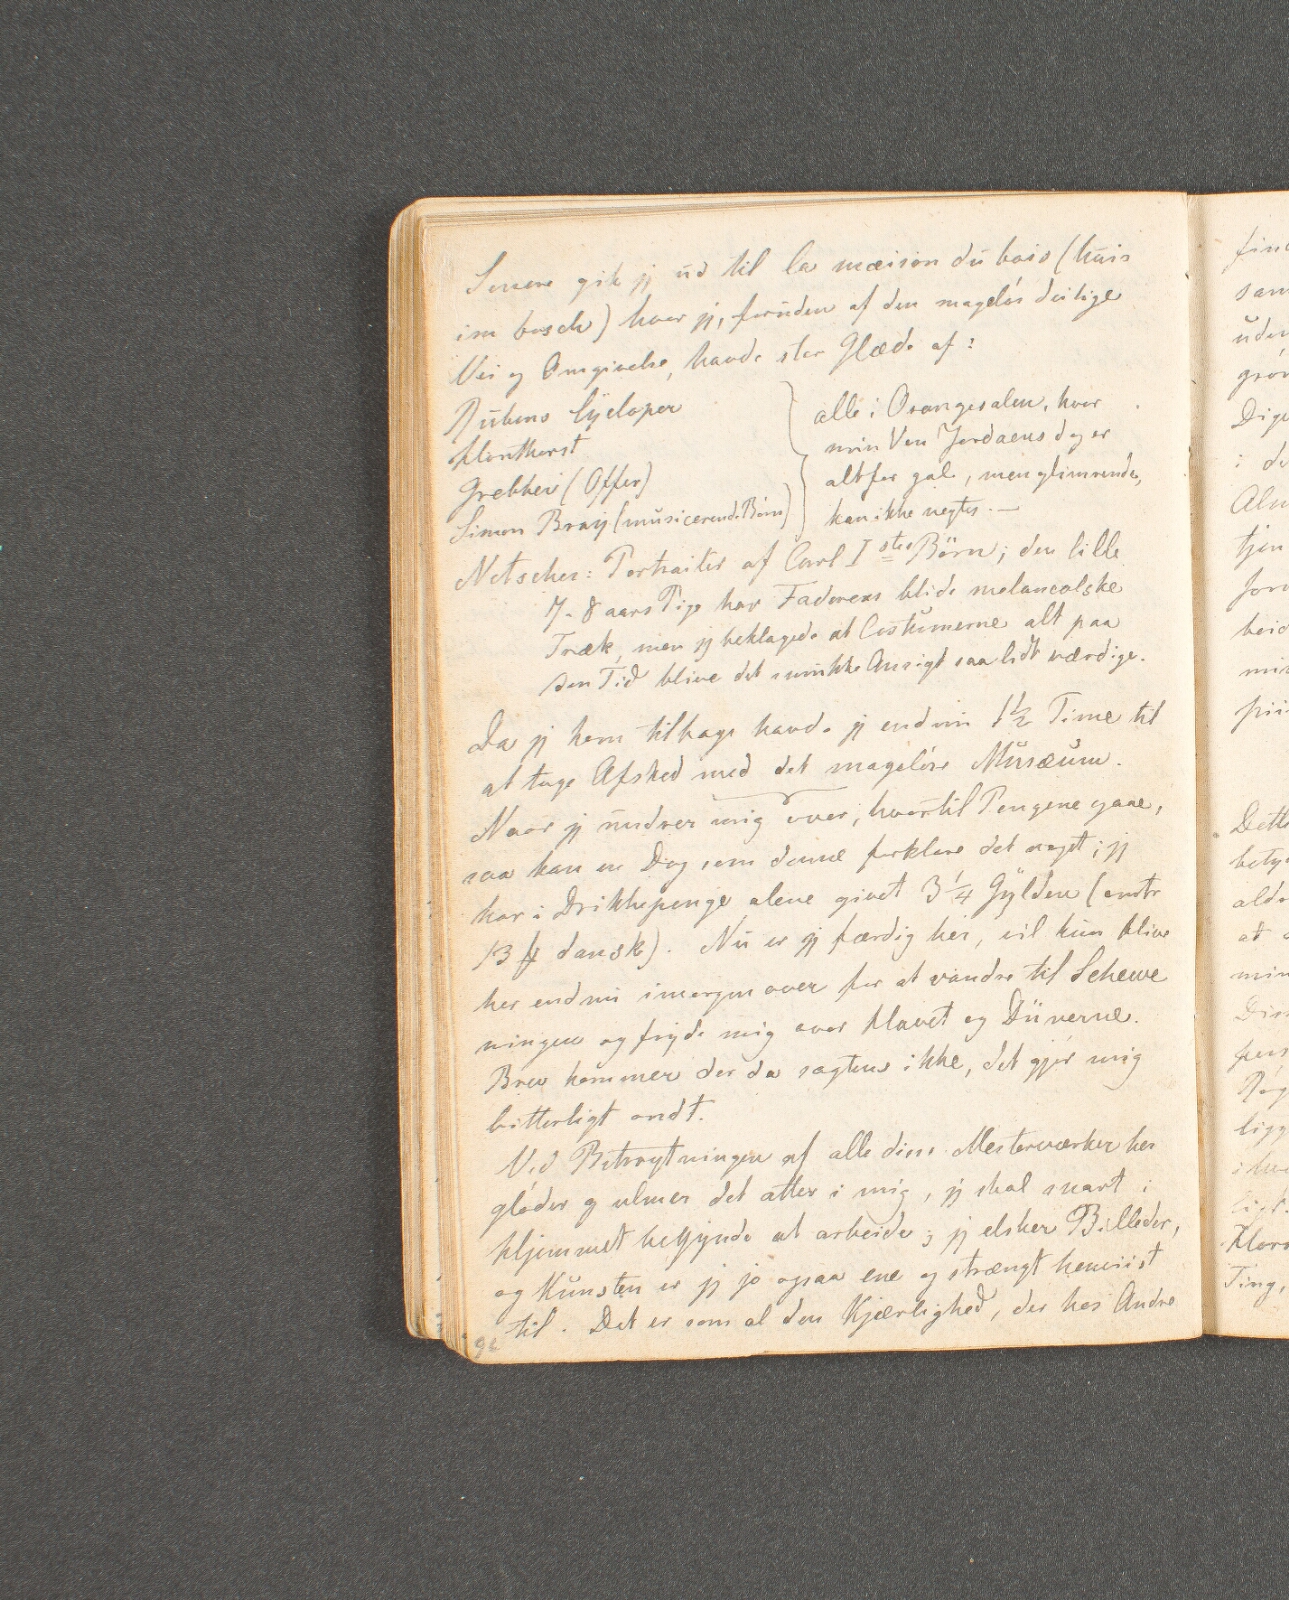 Senere gik jeg ud til la maison du bois (huis
im bosch) hvor jeg, foruden af den mageløs deilige
Vei og Omgivelse, havde stor Glæde af:
Rubens Cycloper
Honthorst
Grebber (Offer)
Simon Bray (musicerende Børn)
alle i Orangesalen, hvor
min Ven Jordaens dog er
altfor gal, men glimrende,
kan ikke negtes. —
Netscher: Portraiter af Carl I stes Børn; den lille
7-8 aars Pige har Faderens blide melancolske
Træk, men jeg beklagede at Costumerne alt paa
den Tid blive det smukke Ansigt saa lidt værdige.
Da jeg kom tilbage havde jeg endnu 1½ Time til
at tage Afsked med det mageløse Musæum.
Naar jeg undrer mig over, hvortil Pengene gaae,
saa kan en Dag som denne forklare det noget; jeg
har i Drikkepenge alene givet 3¼ Gylden (omtr
13 ꝟ dansk). Nu er jeg færdig her, vil kun blive
her endnu imorgen over for at vandre til Scheve
ningen og fryde mig over Havet og Dünerne.
Brev kommer der da sagtens ikke, det gjør mig
bitterligt ondt.
Ved Betragtningen af alle disse Mesterværker her
gløder og ulmer det atter i mig, jeg skal snart i
Hjemmet begynde at arbeide; jeg elsker Billeder,
og Kunsten er jeg jo ogsaa ene og strængt henviist
til. Det er som al den Kjærlighed, der hos Andre